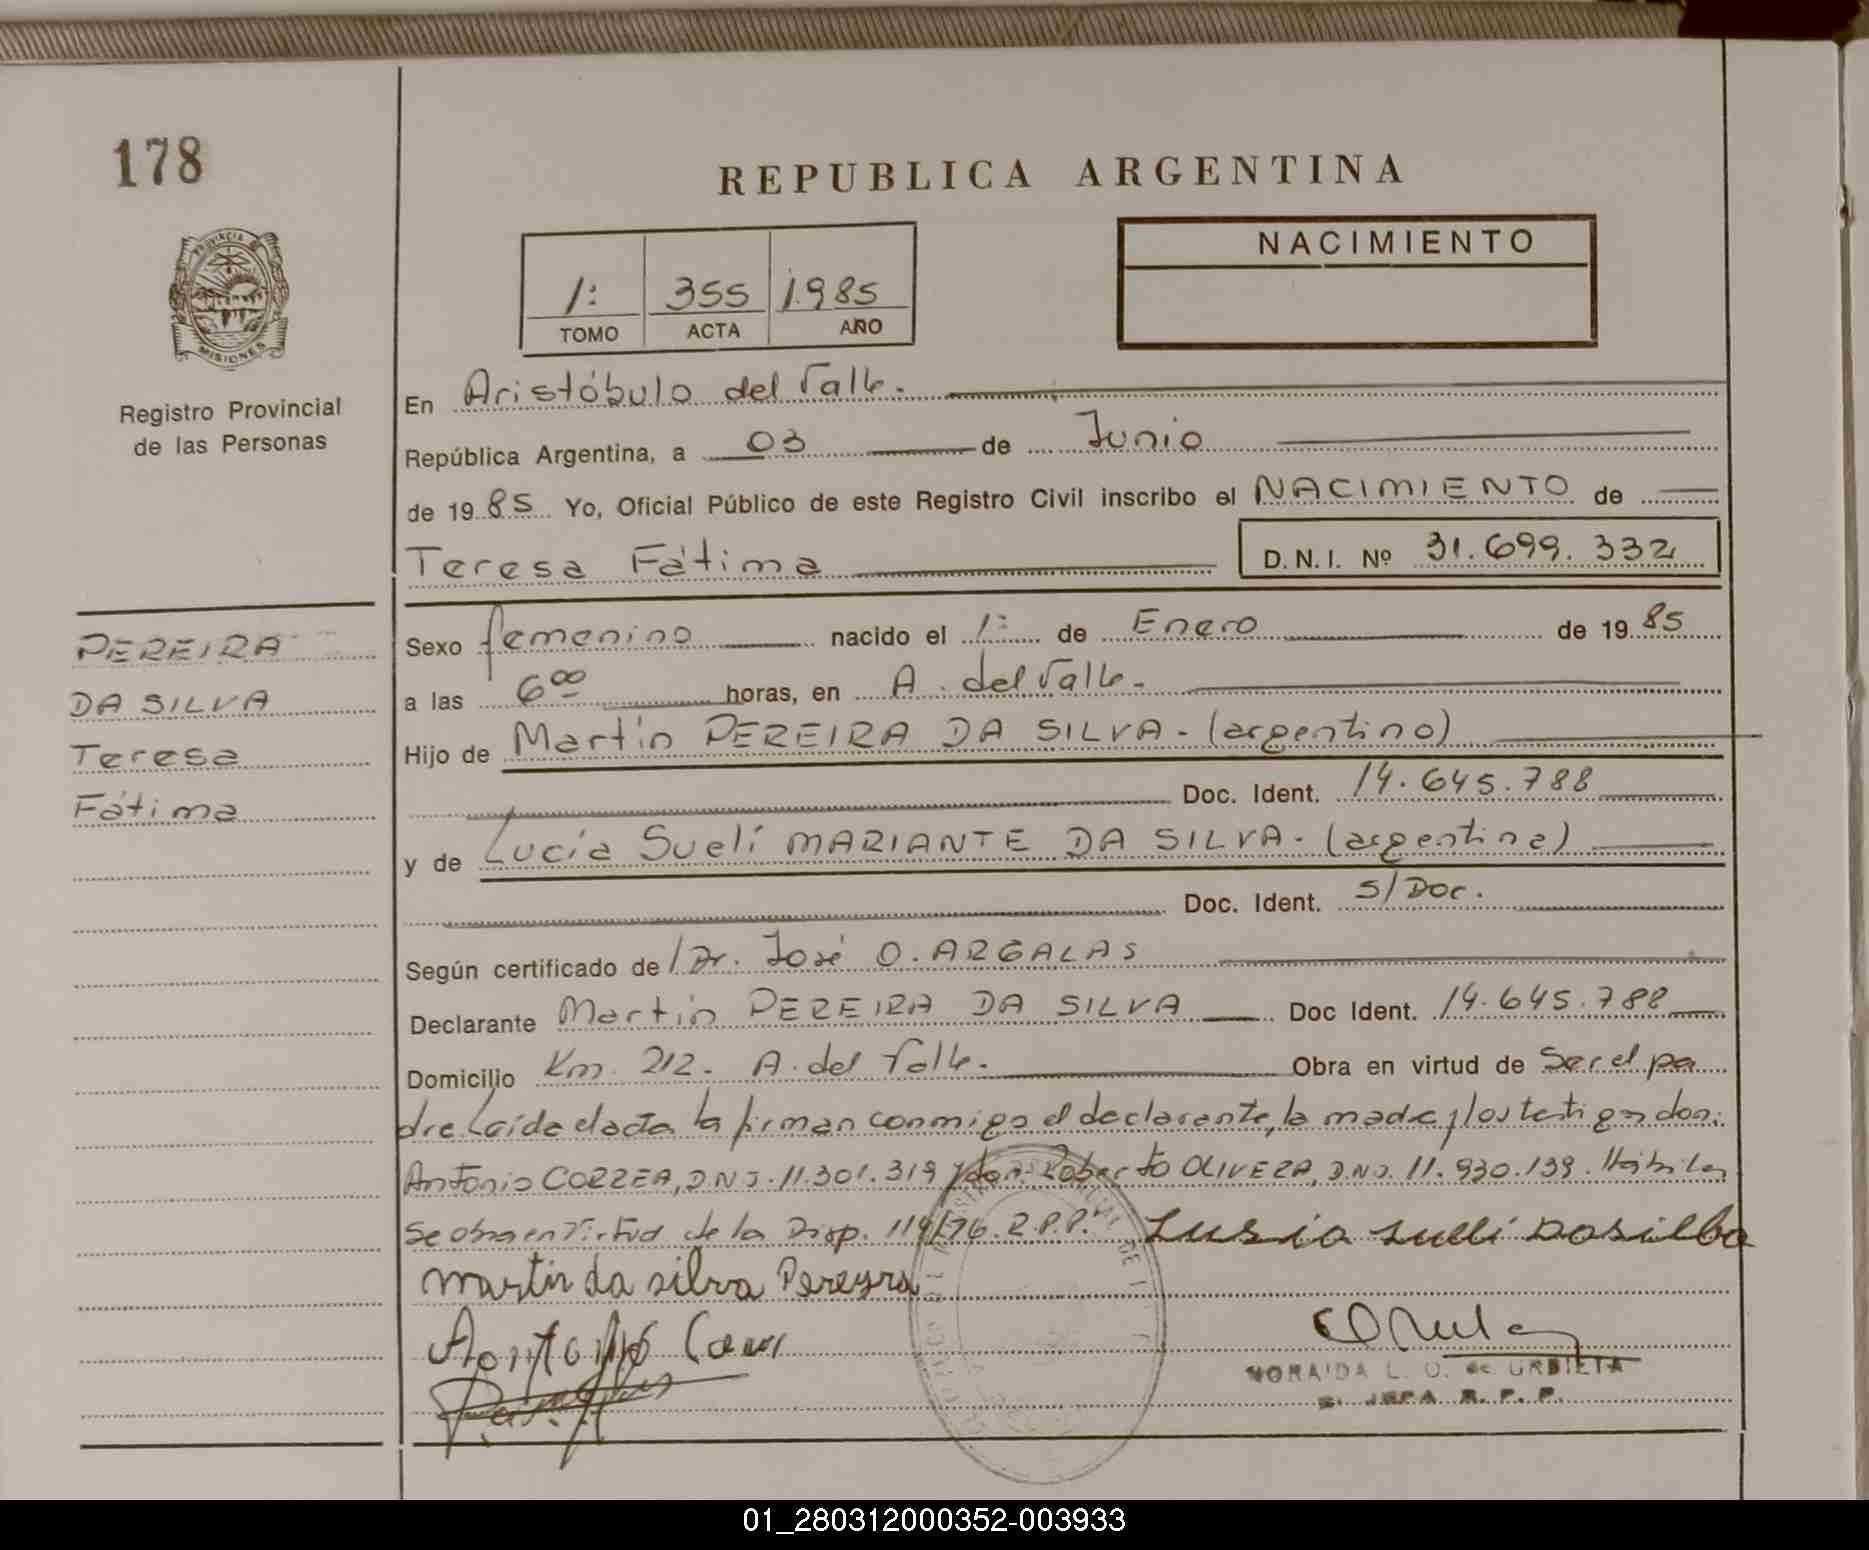 178
REPUBLICA ARGENTINA
PROVINCIA DE
MISIONES
Registro Provincial
de las Personas
1: 355 1985
TOMO ACTA AÑO
NACIMIENTO
En Aristóbulo del Valle.
República Argentina, a 03 de Junio
de 1985 Yo, Oficial Público de este Registro Civil inscribo el NACIMIENTO de
Teresa Fátima D.N.I. Nº 31.699.332
PEREIRA
DA SILVA
Teresa
Fátima
Sexo femenino nacido el 1: de Enero de 1985
a las 600 horas, en A. del Valle.
Hijo de Martín PEREIRA DA SILVA - (argentino)
Doc. Ident. 14.645.788
y de Lucía Suelí MARIANTE DA SILVA - (argentina)
Doc. Ident. S/Doc.
Según certificado de /Dr. José O. ARGALAS
Declarante Martín PEREIRA DA SILVA Doc Ident. 14.645.788
Domicilio Km. 212. A. del Valle. Obra en virtud de Ser el pa
dre. Leída el acta la firman conmigo el declarante, la madre y los testigos don:
Antonio CORREA, DNI. 11.301.319 y don: Roberto OLIVERA, DNI. 11.930.139. Hábiles
Se obra en virtud de la Disp. 119/76. R.P.P. Lusia Suelí Dasilba
Martin da silva Pereyra
NORAIDA L. O. de URBIETA
JEFA R. P. P.
01_280312000352-003933